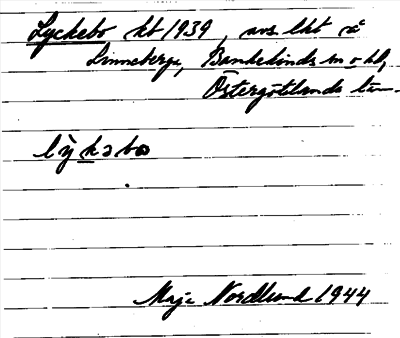 Lyckebo kt 1939, avs. lht å
Linneberga, Bankekinds sn o hd,
Östergötlands län.
lỳkəbω
Maja Nordlund 1944